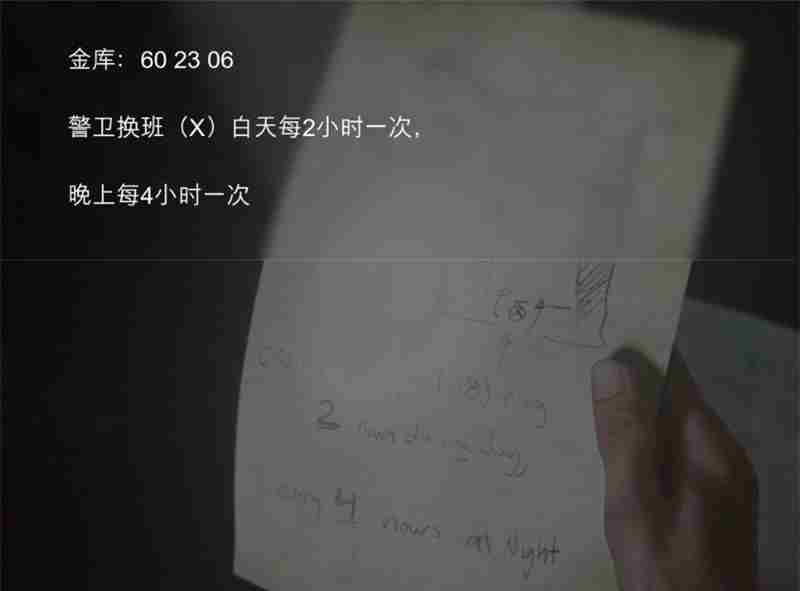 金库：60 23 06
警卫换班（X）白天每2小时一次,
晚上每4小时一次
2 hours during day,
every 4 hours at Night